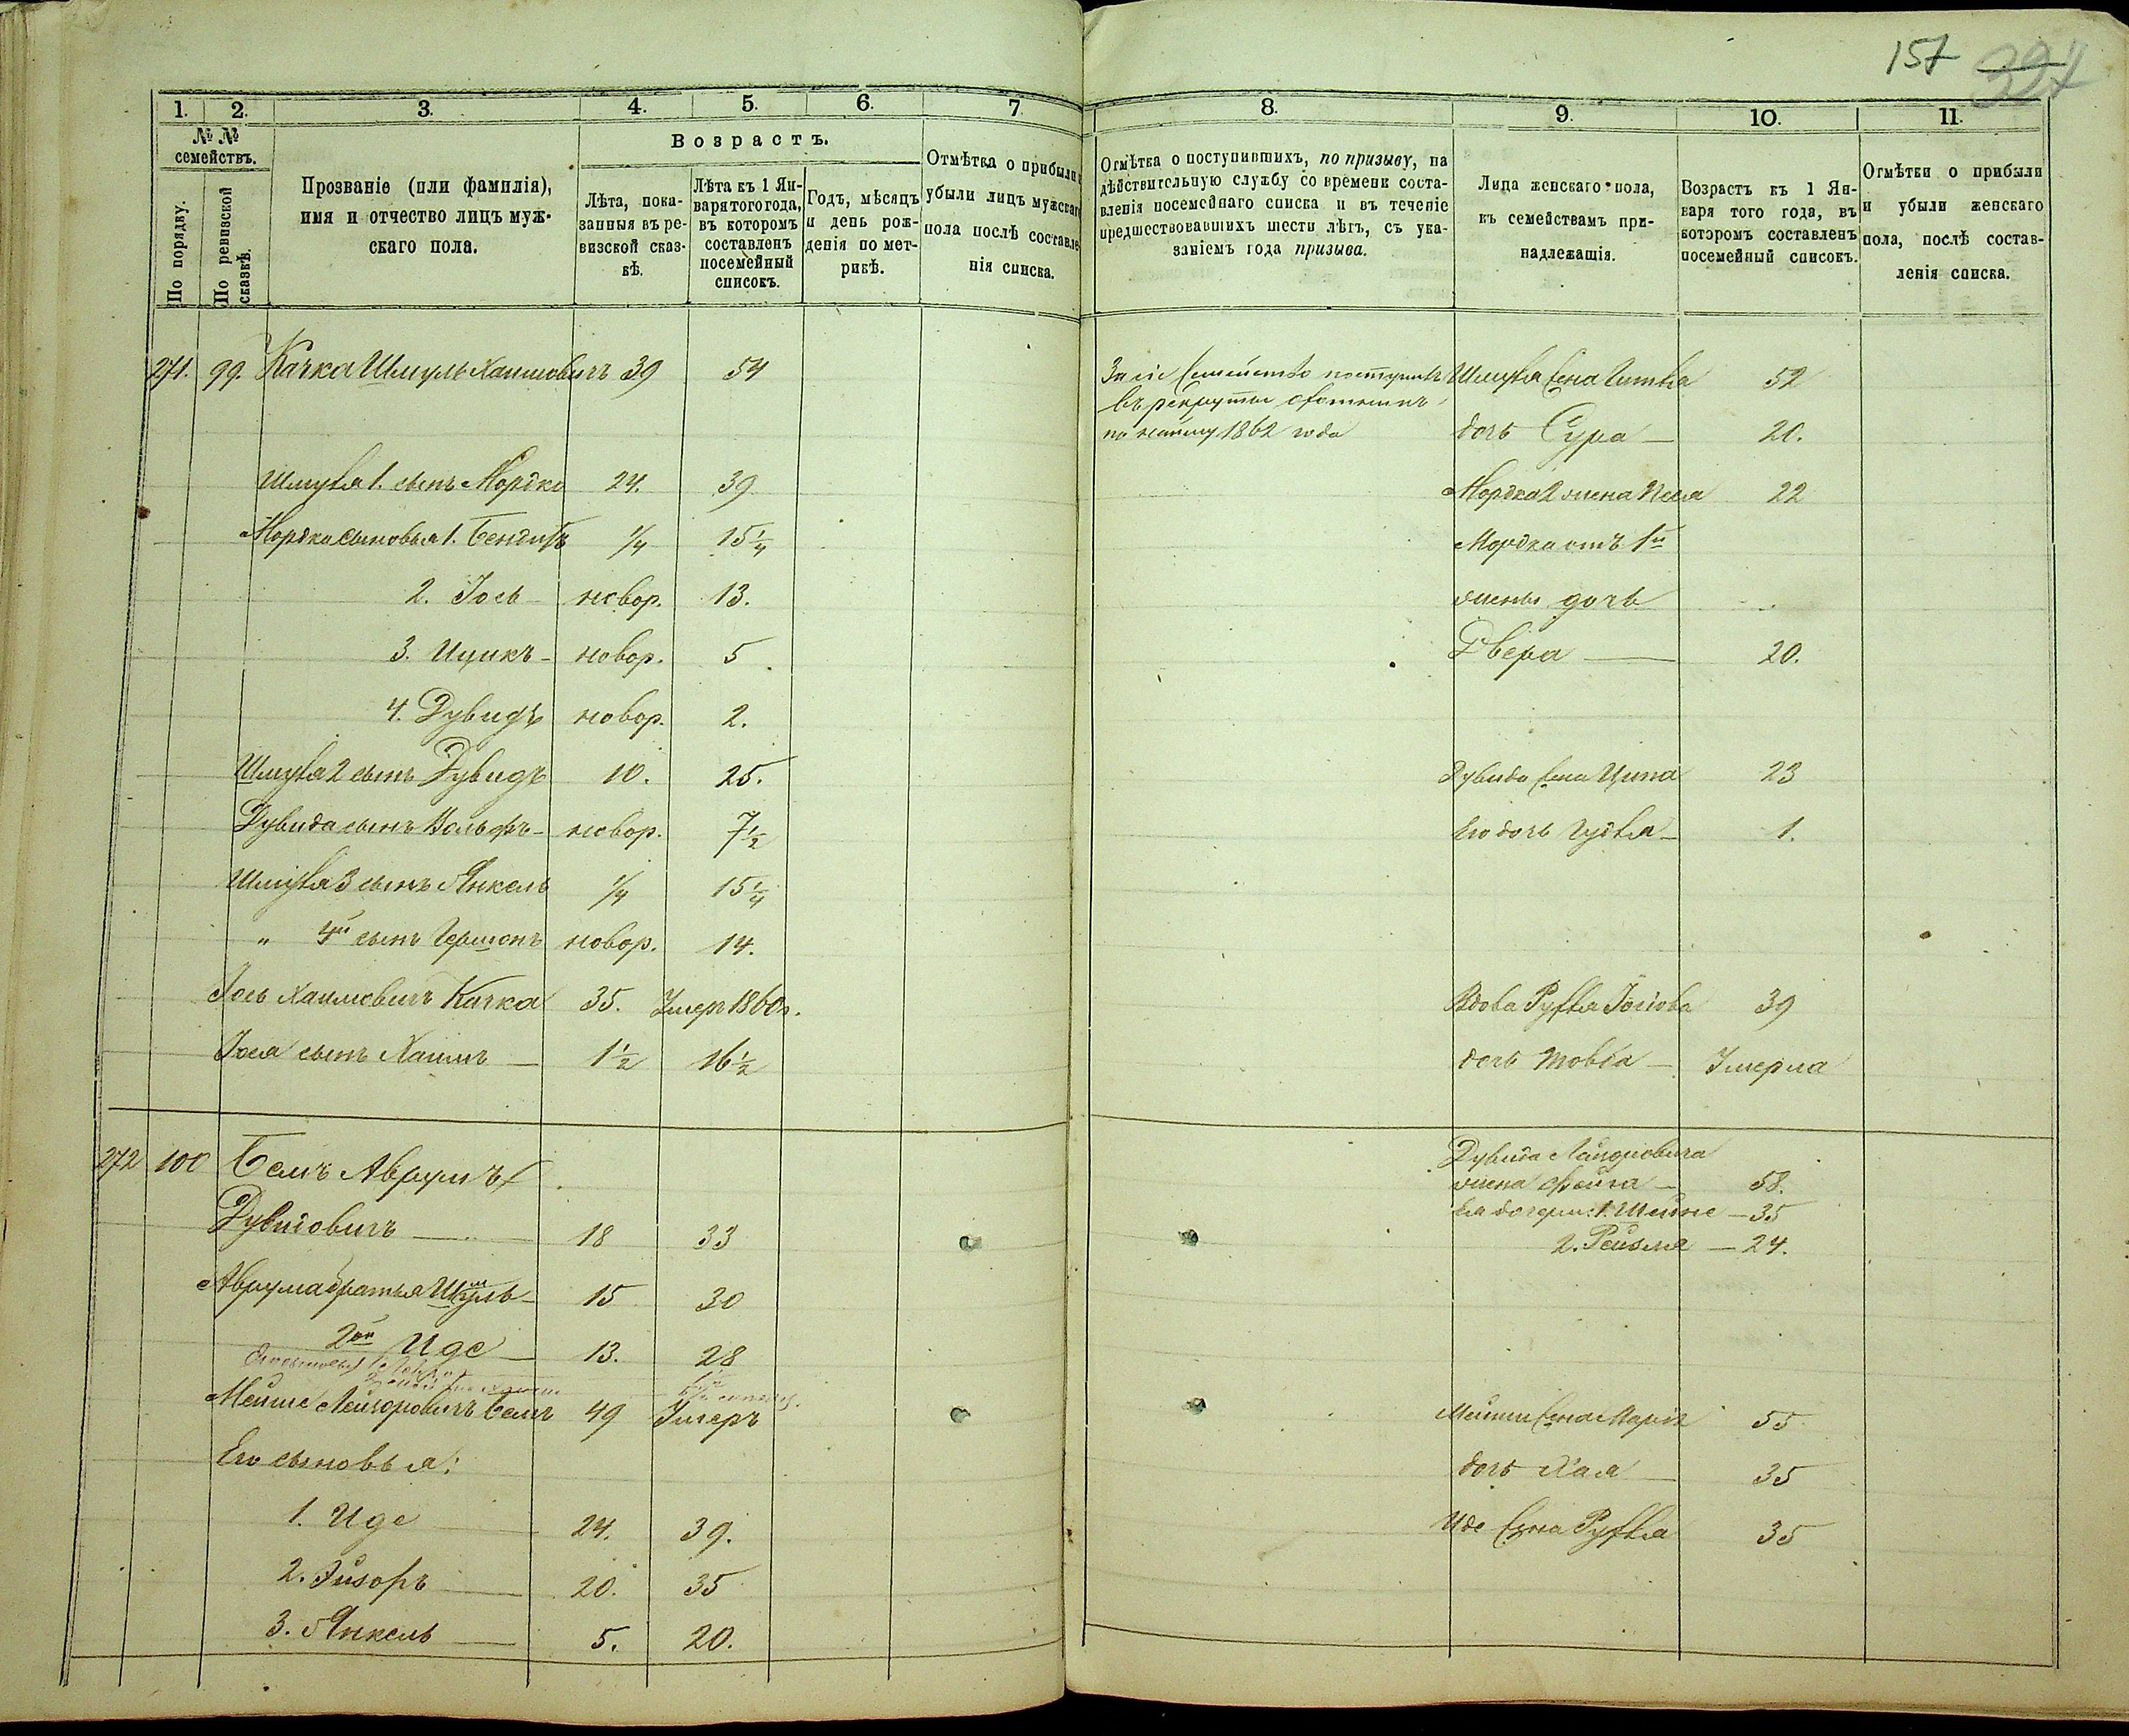 157 324
1. 2. 3. 4. 5. 6. 7
№ №
семействъ.
По порядку.
По ревизской сказкѣ.
Прозваніе (или фамилія),
имя и отчество лицъ муж-
скаго пола.
Возрастъ.
Лѣта, пока-
занныя въ ре-
визской сказ-
кѣ.
Лѣта къ 1 Ян-
варя того года,
въ котором
составленъ
посемейный
списокъ.
Годъ, мѣсяцъ
и день рож-
денія по мет-
рикѣ.
Отмѣтка о прибыли и
убыли лицъ мужскаго
пола послѣ составле-
нія списка.
8. 9. 10. 11.
Отмѣтка о поступившихъ, по призыву, на
дѣйствительную службу со времени соста-
вленія посемейнаго списка и въ теченіе
предшествовавшихъ шести лѣтъ, съ ука-
заніемъ года призыва.
Лица женскаго пола,
къ семействамъ при-
надлежащія.
Возрастъ къ 1 Ян-
варя того года, въ
которомъ составленъ
посемейный списокъ.
Отмѣтки о прибыли
и убыли женскаго
пола, послѣ состав-
ленія списка.
271. 99. Качка Шмуль Хаимовичъ 39 54
Шмуля 1. сынъ Мордко 24. 39
Мордка сыновья 1. Бендитъ 1/4 15 1/4
2. Іось новор. 13.
3. Ицикъ новор. 5
4. Дувидъ новор. 2.
Шмуля 2 сынъ Дувидъ 10. 25.
Дувида сынъ Вольфъ новор. 7 1/2
Шмуля 3 сынъ Янкель 1/4 15 1/4
" 4й сынъ Гершонъ новор. 14.
Іось Хаимовичъ Качка 35. Умеръ 1860 г.
Іося сынъ Хаимъ 1 1/2 16 1/2
За сіе семейство поступилъ
въ рекруты охотникъ
по найму 1862 года
Шмуля жена Гитля 52
дочь Сура 20.
Мордка 2 жена Песя 22
Мордка отъ 1й
жены дочь
Двера 20.
Дувида жена Ципа 23
Его дочь Гудля 1.
Вдова Руфля Іосіова 39
дочь Товба Умерла
272 100 Бемъ Аврумъ
Дувидовичъ 18 33
Аврума братья Шмуль 15 30
2ой Иде 13. 28
Мейше Лейзоровичъ Бемъ 49 Умеръ
Его сыновья:
1. Иде 24. 39.
2. Лизоръ 20. 35
3. Янкель 5. 20.
Дувида Лайзоровича
жена Фейга 58.
Ея дочери: 1. Шейне 35
2. Рейзля 24.
Мейши жена Марія 55
дочь Хая 35
Иде жена Руфля 35